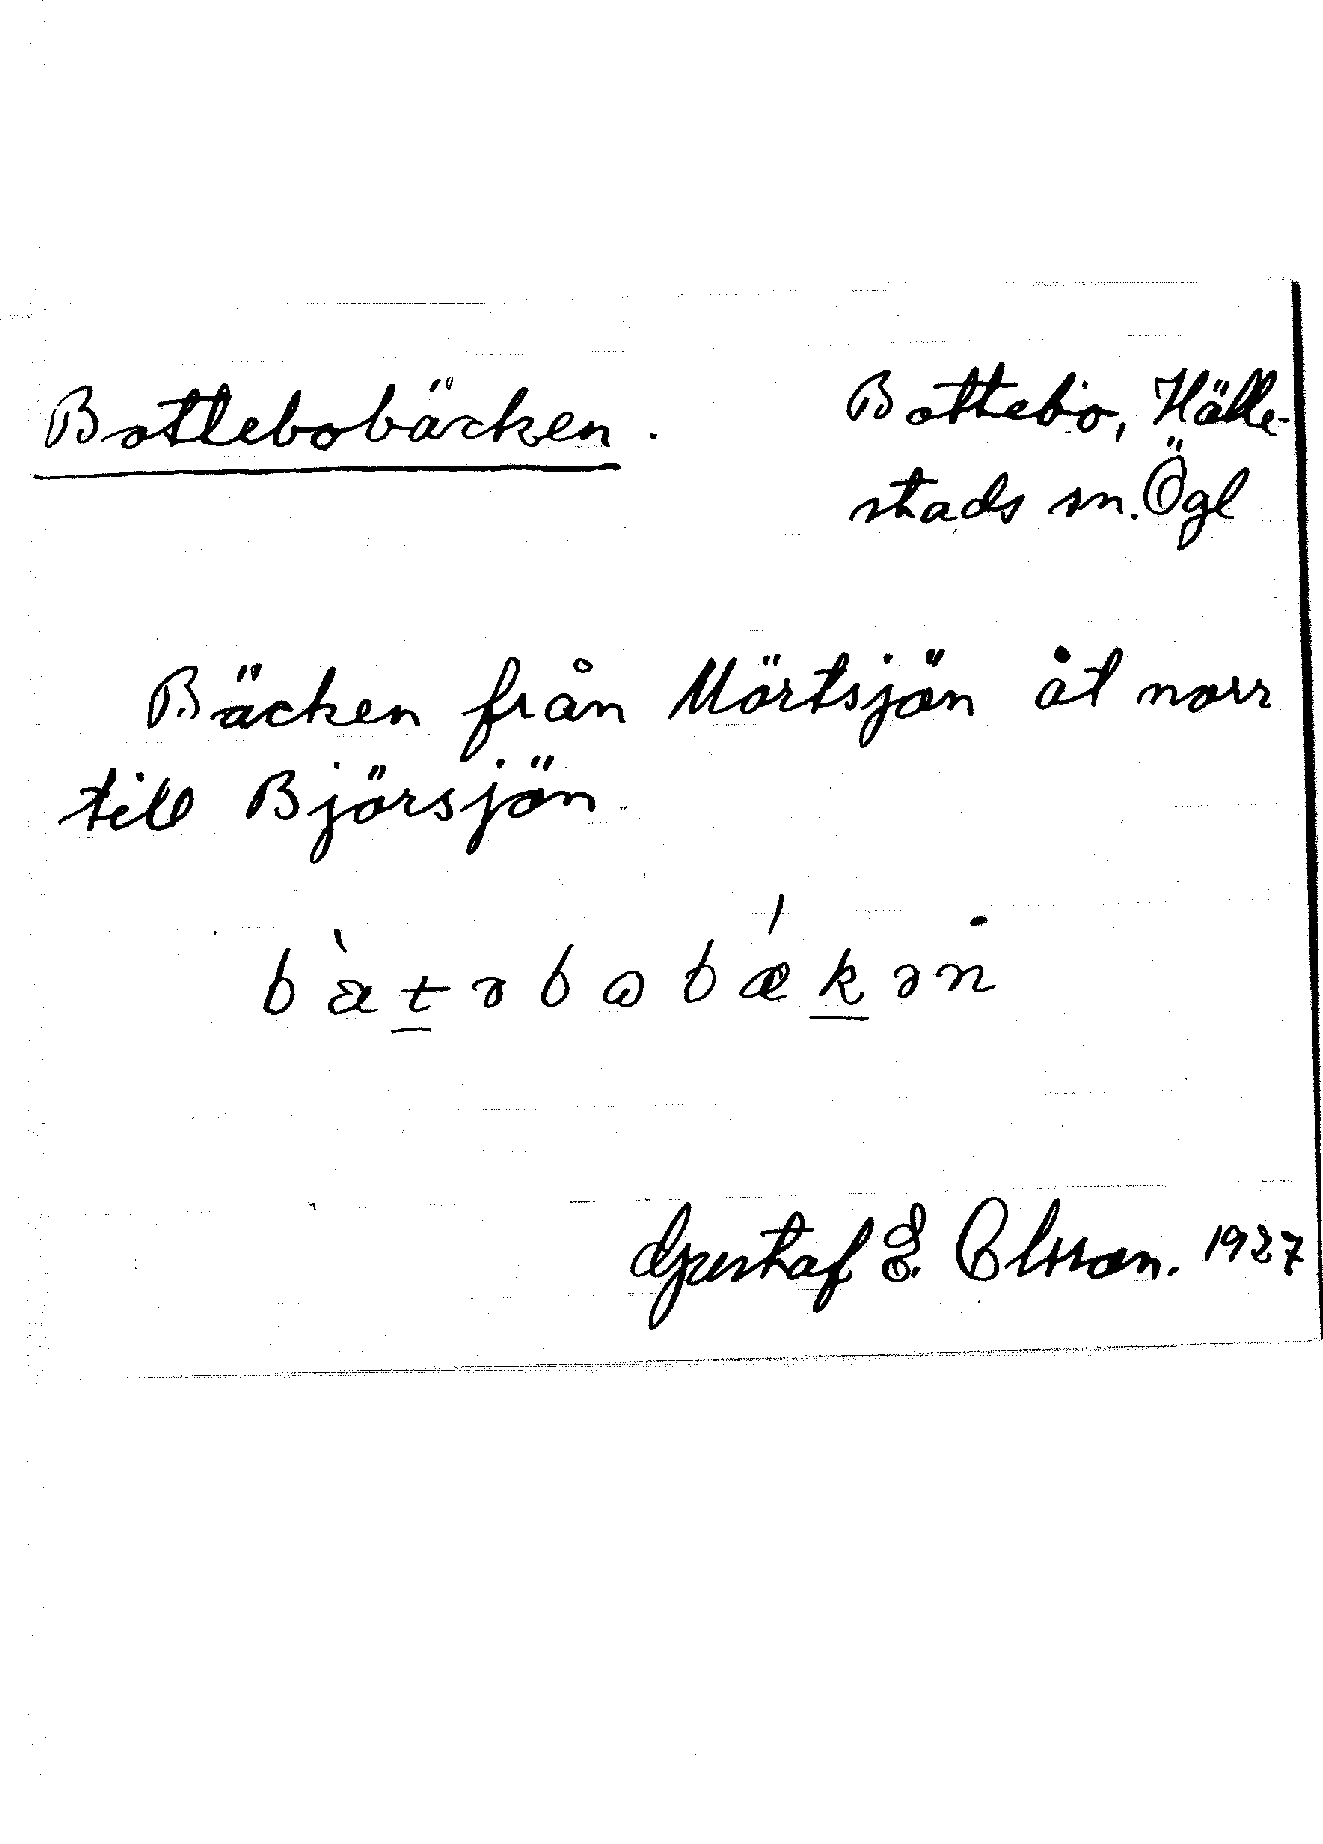 Bottebobäcken.
Bottebo, Hälle-
stads sn. Ögl
Bäcken från Mörtsjön åt norr
till Björsjön.
Gustaf E. Olsson. 1927